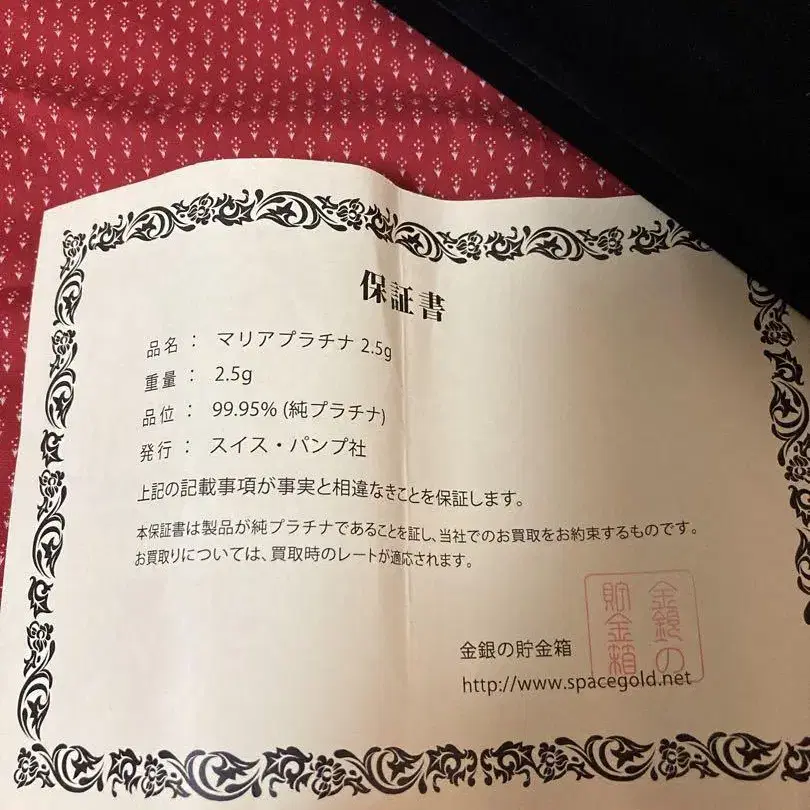 保証書
品名 : マリアプラチナ 2.5g
重量 : 2.5g
品位 : 99.95% (純プラチナ)
発行 : スイス・パンプ社
上記の記載事項が事実と相違なきことを保証します。
本保証書は製品が純プラチナであることを証し、当社でのお買取をお約束するものです。
お買取りについては、買取時のレートが適応されます。
金銀の貯金箱
金銀の貯金箱
http://www.spacegold.net